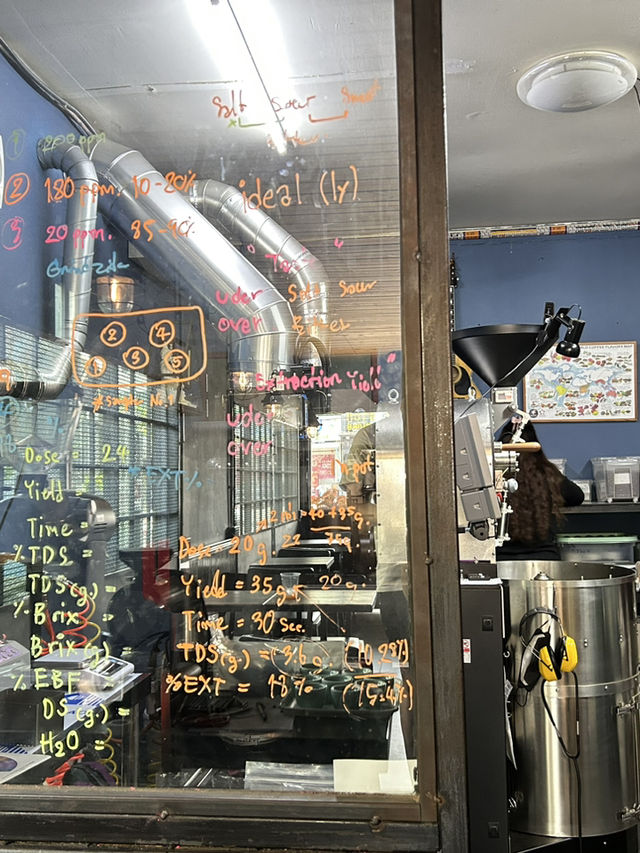 Salt Sour Sweet
① 200 ppm
② 180 ppm. 10-20%
ideal (ly)
③ 20 ppm. 85-90%
" TDS "
uder Salt Sour
over Bitter
② ④
① ③ ⑤
" Extraction Yield "
uder
over
Dose = 24
% EXT %
Yield =
Time =
% TDS =
TDS(g.) =
% Brix =
Brix(g) =
% EBF =
DS(g.) =
H2O =
Dose = 20 g.
Yield = 35 g. 20 g.
Time = 30 sec.
TDS(g.) = (3.6 g. (10.28%)
% EXT = 18% (15.4%)